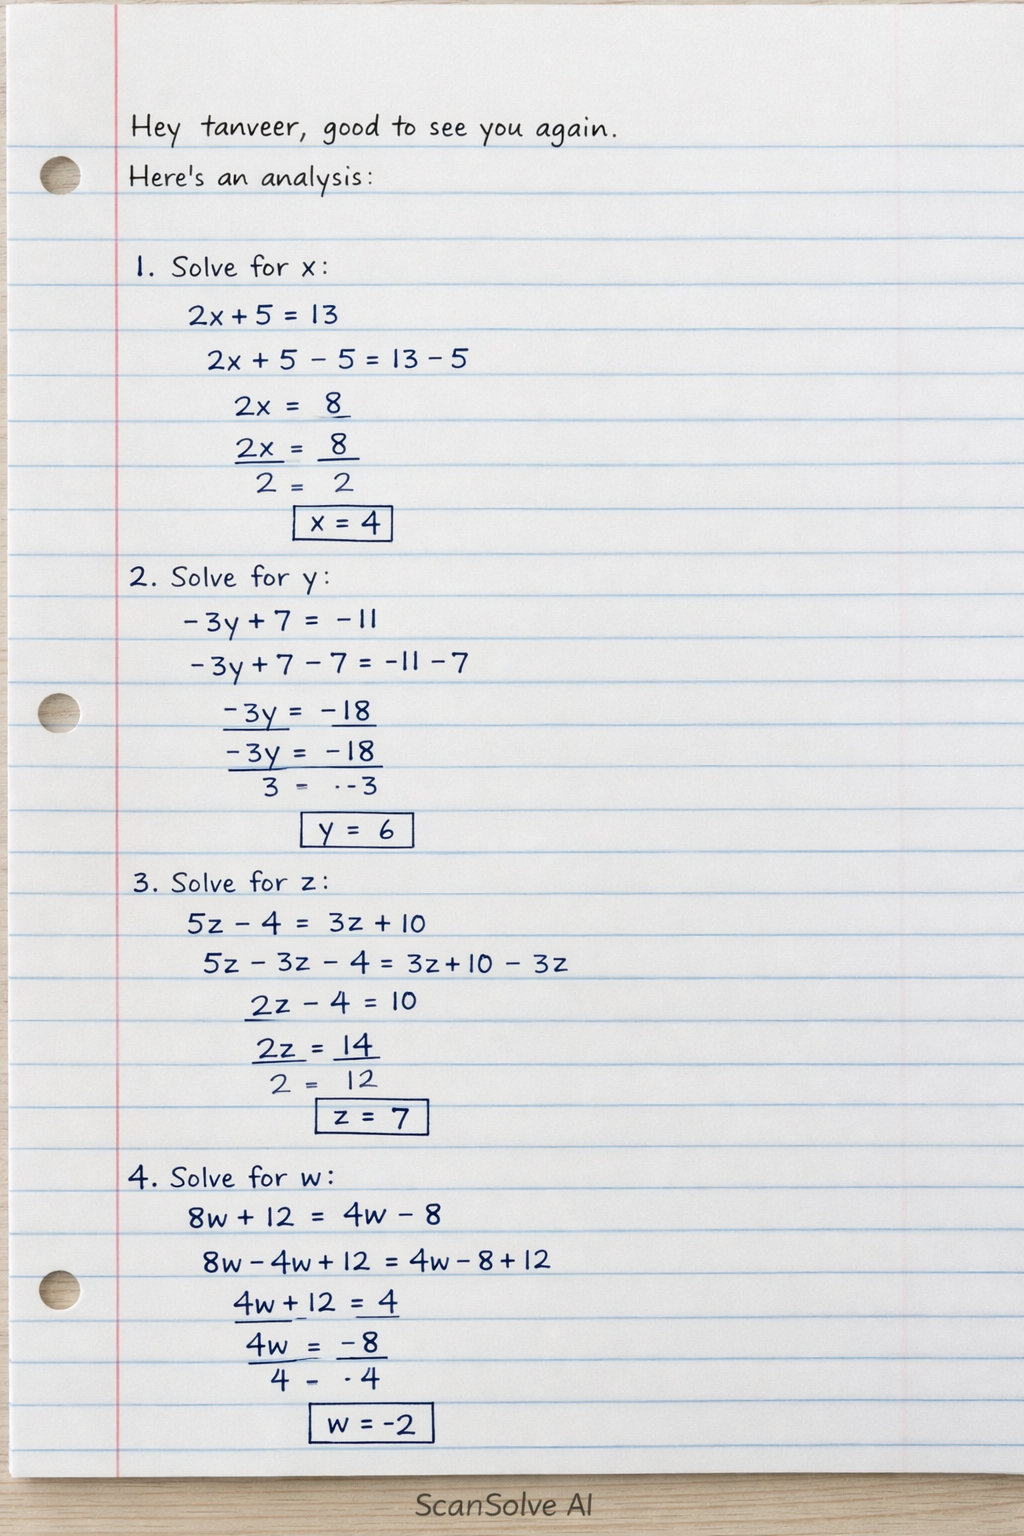 Hey tanveer, good to see you again.
Here's an analysis:
1. Solve for x:
2x + 5 = 13
2x + 5 - 5 = 13 - 5
2x = 8
2x = 8
2 = 2
x = 4
2. Solve for y:
-3y + 7 = -11
-3y + 7 - 7 = -11 - 7
-3y = -18
-3y = -18
3 - ·-3
y = 6
3. Solve for z:
5z - 4 = 3z + 10
5z - 3z - 4 = 3z+10 - 3z
2z - 4 = 10
2z = 14
2 = 12
z = 7
4. Solve for w:
8w + 12 = 4w - 8
8w - 4w + 12 = 4w - 8 + 12
4w + 12 = 4
4w = -8
4 - ·4
w = -2
ScanSolve AI